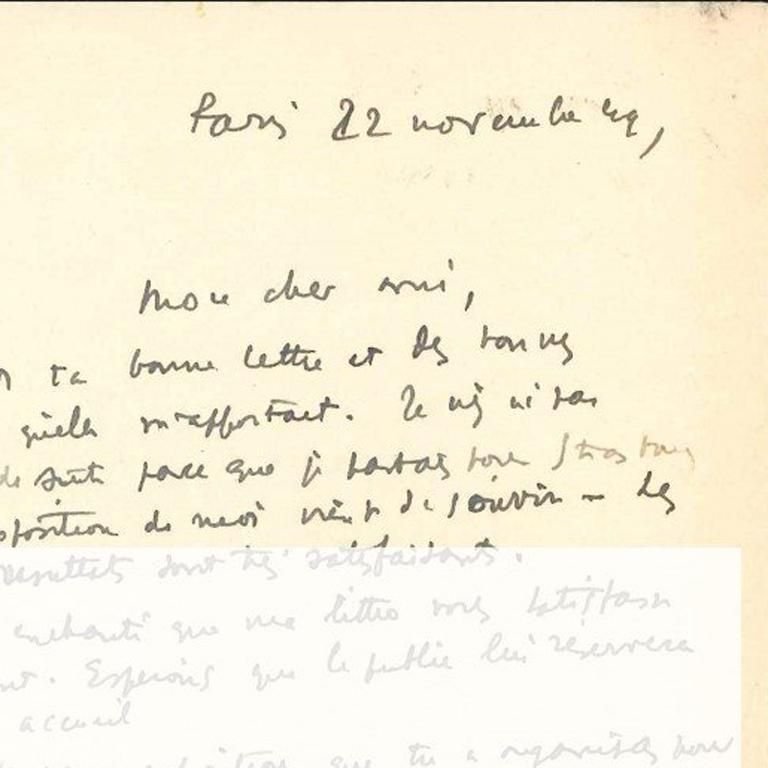 Paris 22 novembre 49,
Mon cher ami,
ta bonne lettre et des bonnes
qu'elle m'apportait. Je n'ai pas
de suite parce que je partais pour Strasbourg
exposition de moi vient de s'ouvrir - Les
résultats sont très satisfaisants.
enchanté que ma litho vous satisfasse
Espérons que le public lui réservera
accueil
que tu a organisée pour